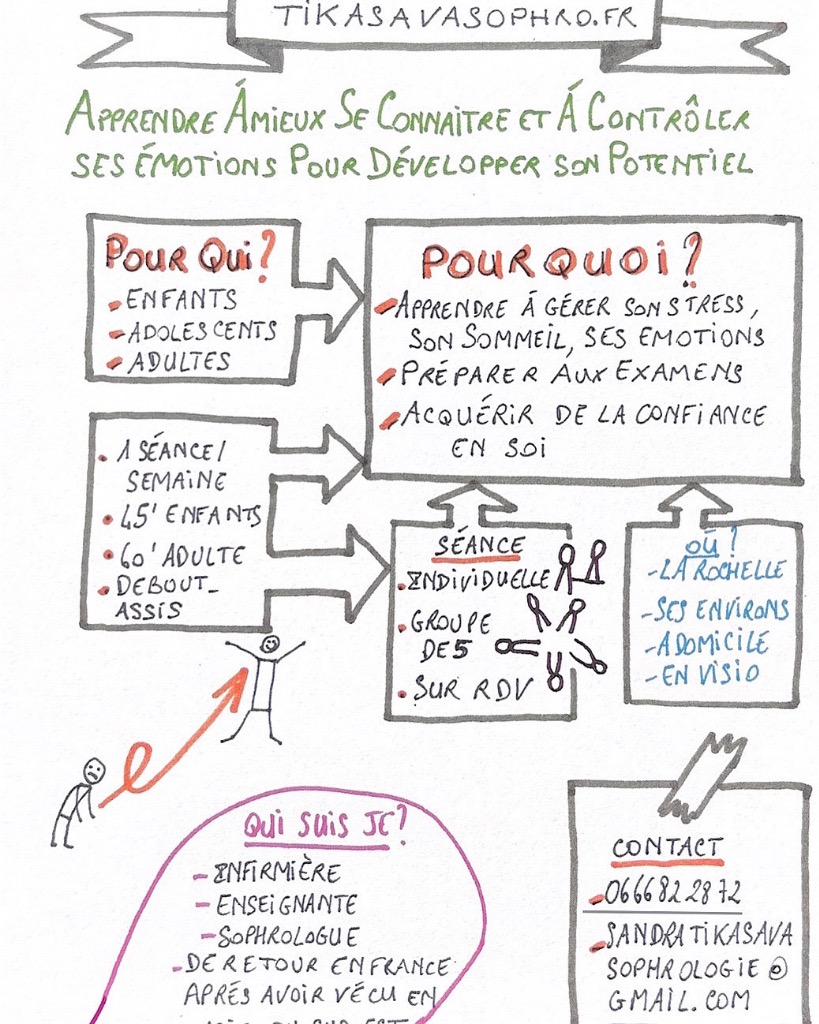 TIKASAVASOPHRO.FR
APPRENDRE ÁMIEUX SE CONNAITRE ET Á CONTRÔLER
SES ÉMOTIONS POUR DÉVELOPPER SON POTENTIEL
POUR QUI?
- ENFANTS
- ADOLESCENTS
- ADULTES
POURQUOI?
- APPRENDRE Á GÉRER SON STRESS,
SON SOMMEIL, SES EMOTIONS
- PRÉPARER AUX EXAMENS
- ACQUÉRIR DE LA CONFIANCE
EN SOI
• 1 SÉANCE/
SEMAINE
• 45' ENFANTS
• 60' ADULTE
• DEBOUT_
ASSIS
SÉANCE
• INDIVIDUELLE
• GROUPE
DE 5
• SUR RDV
OÙ?
- LA ROCHELLE
- SES ENVIRONS
- A DOMICILE
- EN VISIO
QUI SUIS JE?
- INFIRMIÈRE
- ENSEIGNANTE
- SOPHROLOGUE
- DE RETOUR EN FRANCE
APRÉS AVOIR VÉCU EN
CONTACT
- 0666822872
- SANDRATIKASAVA
SOPHROLOGIE@
GMAIL.COM